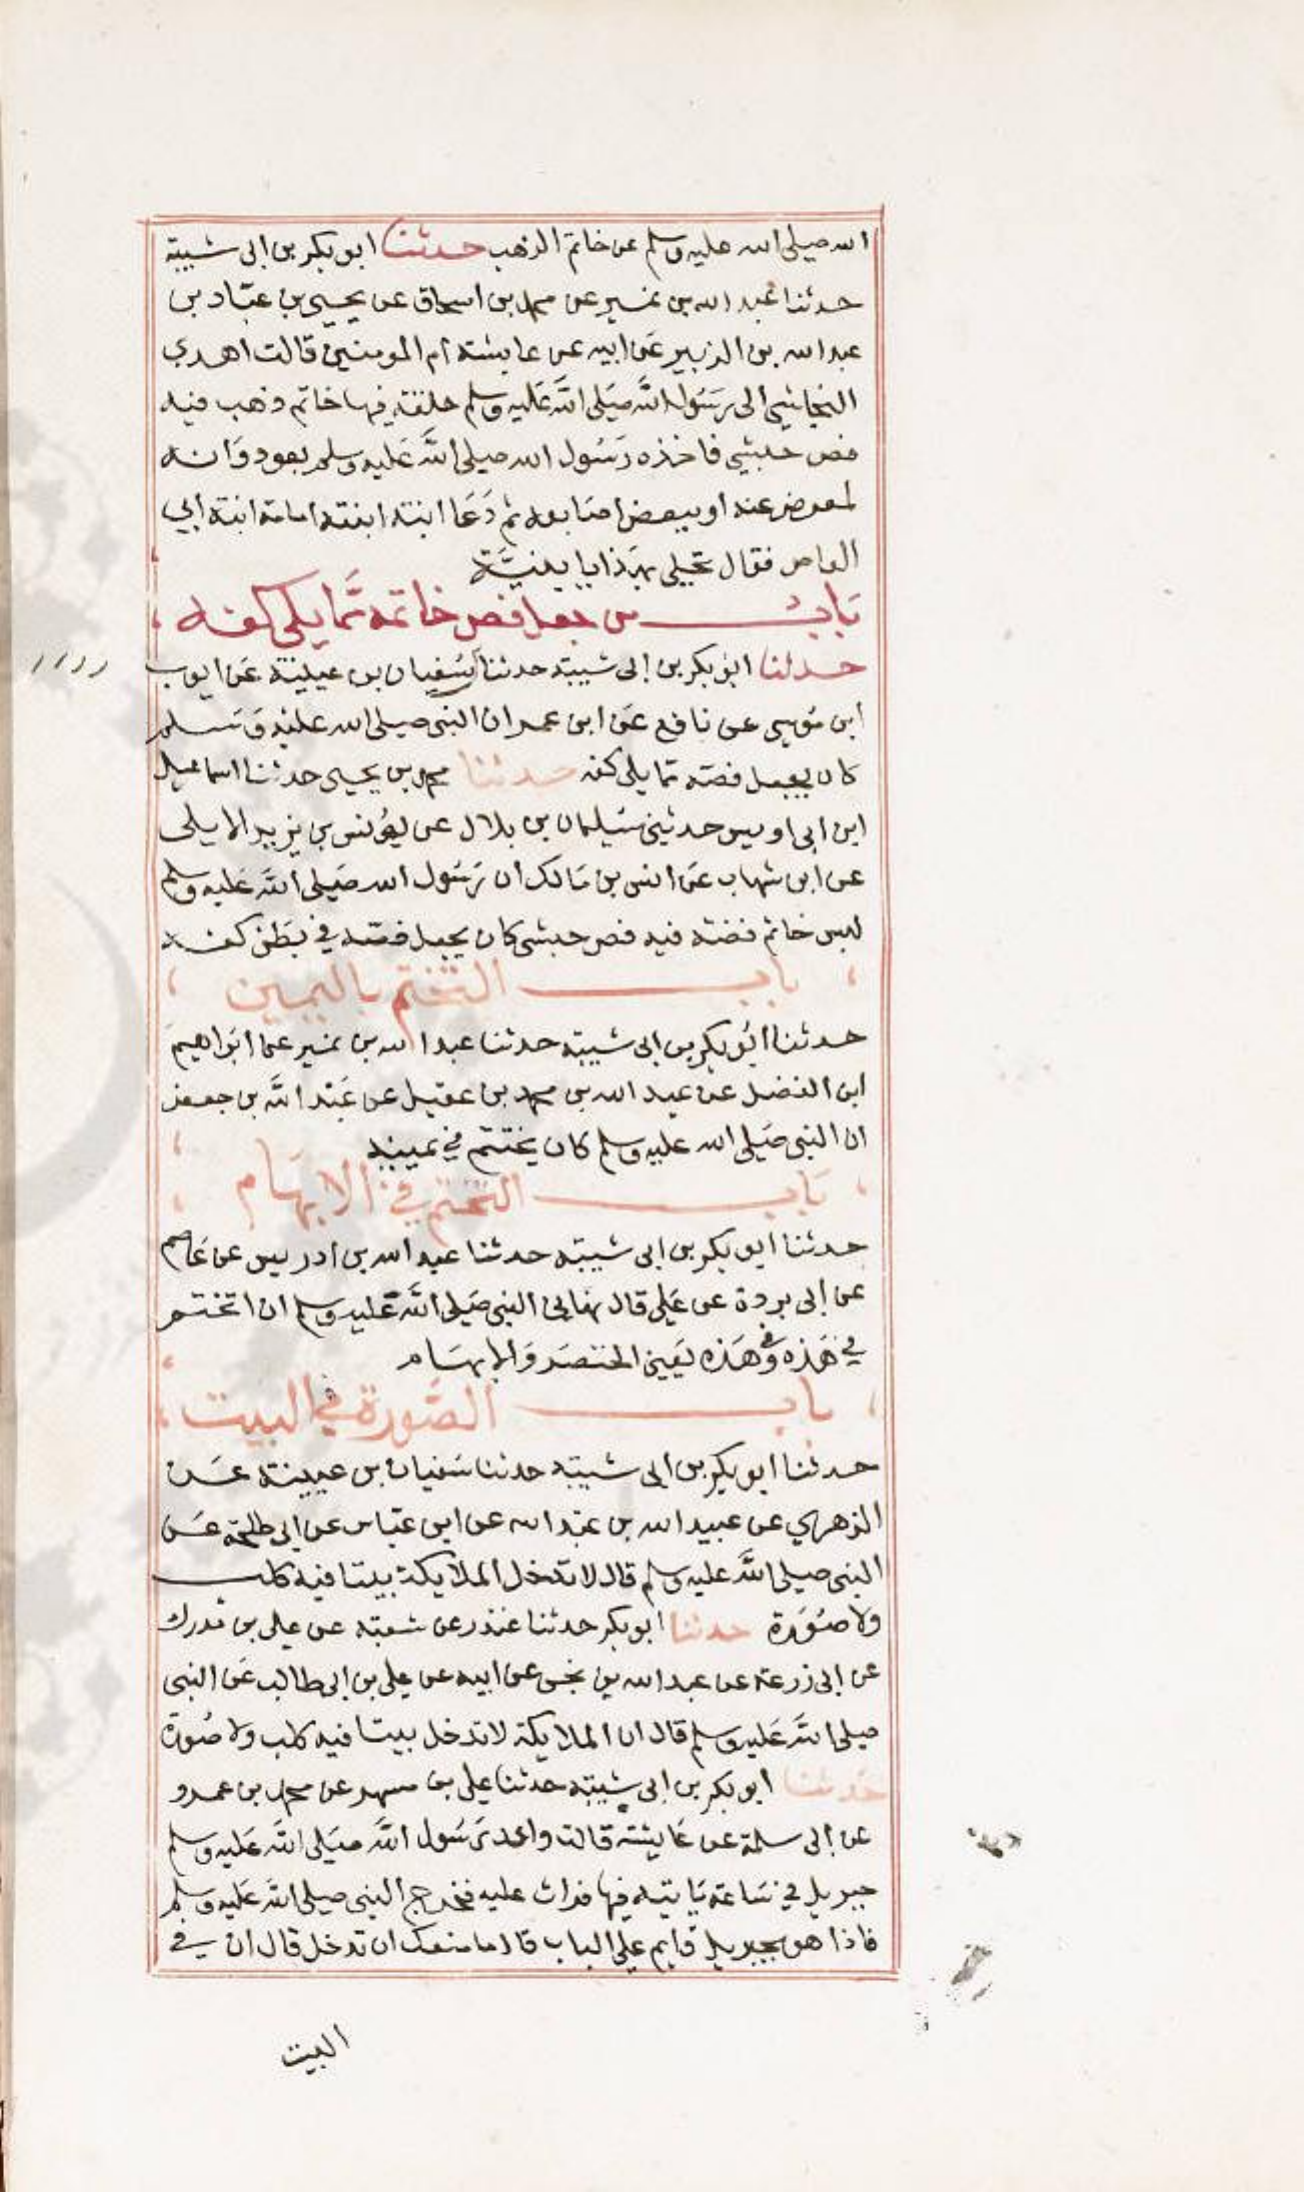 الله صلى الله عليه وسلم عن خاتم الذهب حدثنا ابو بكر بن ابى شيبة
حدثنا عبد الله بن نمير عن محمد بن اسحاق عن يحيى بن عبّاد بن
عبد الله بن الزبير عَن ابيه عن عايشة ام المومنين قالت اهدى
النجاشي الى رَسُول الله صَلى الله عَليه وسلم حلقة فيها خاتم ذهب فيه
فص حبشي فاخذه رَسُول الله صلى الله عَليه وسلم بعود وَانه
لمعرض عنه او ببعض اصَابعه ثم دَعَا ابنة ابنته امامة ابنة ابي
العاص فقال تحلي بهَذا يا بنيَّة
بَابُ من جعل فص خاتمه مَّما يلى كفه
حدثنا ابُو بكر بن ابى شيبة حدثنا سُفيان بن عيينة عَن ايوب
ابن مُوسى عن نافع عَن ابن عمر ان النبى صلى الله عليه وَسَلم
كان يجعل فصه مما يلى كفه حدثنا محمد بن يحيى حدثنا اسماعيل
ابن ابى اويس حدثني سُليمان بن بلال عن يُونس بن يزيد الايلى
عن ابن شهاب عَن انس بن مَالك ان رَسُول الله صَلى الله عَليه وسلم
لبس خاتم فضة فيه فص حبشى كان يجعل فصه في بطَن كفه
باب التختم باليمين
حدثنا ابُو بكر بن ابى شيبة حدثنا عبد الله بن نمير عن ابرَاهيم
ابن الفضل عن عبد الله بن محمد بن عقيل عن عَبْد الله بن جعفر
ان النبى صَلى الله عليه وسلم كان يختتم في يمينه
بَاب التختم في الابهَام
حدثنا ابو بكر بن ابى شيبة حدثنا عبد الله بن ادريس عن عَاصم
عن ابى بردة عن عَلى قال نهانى النبى صَلى الله عَليه وسلم ان اتختم
في هَذه وَفى هَذه يَعنى الخنصَر وَالابهَام
باب الصُّورة في البيت
حدثنا ابو بكر بن ابى شيبة حدثنا سُفيان بن عيينة عَن
الزهري عن عبيد الله بن عبَد الله عن ابن عبّاس عن ابى طلحة عَن
النبى صلى الله عليه وسلم قال لا تدخل الملايكة بيتا فيه كلب
ولا صُوَرة حدثنا ابو بكر حدثنا غندر عن شعبة عن على بن مدرك
عن ابى زرعة عن عبد الله بن نجى عن ابيه عن على بن ابى طالب عَن النبى
صلى الله عَليه وسلم قال ان الملايكة لا تدخل بيتا فيه كلب ولا صُورة
حدثنا ابو بكر بن ابى شيبة حدثنا على بن مسهر عن محمد بن عمرو
عن ابى سلمة عن عَايشة قالت واعد رَسُول الله صَلى الله عَليه وسلم
جبريل في سَاعة يَاتيه فيها فراث عليه فخرج النبى صلى الله عَليه وسَلم
فاذا هو بجبريل قايم على الباب قال ما منعك ان تدخل قال ان في
البيت